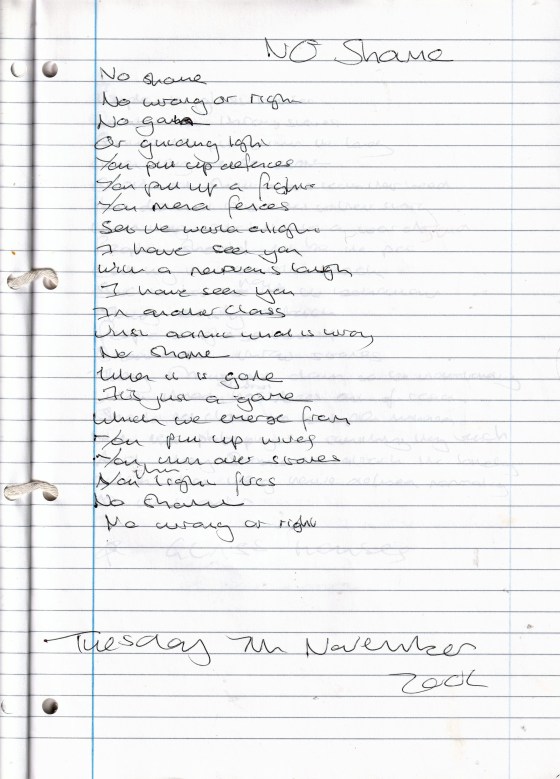 NO Shame
No shame
No wrong or right
No
Or guiding light
You put up defences
You put up a fight
You mend fences
Set the world alight
I have seen you
With a nervous laugh
I have seen you
In another class
Just admit what is wrong
No Shame
When it is gone
It's just a game
Which we emerge from
You put up wires
You turn over stones
You light fires
No Shame
No wrong or right
Tuesday 7th November